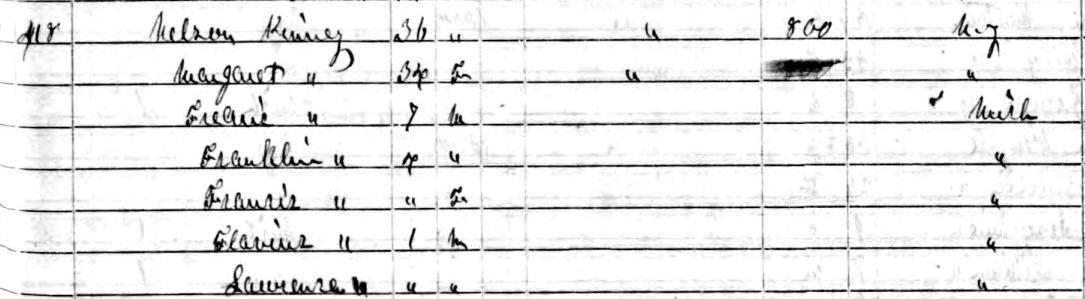 118 Nelson Kinney 36 " " 800 N.Y
Margaret " 34 F " "
" 7 M Mich
Franklin " 4 " "
Francis " " F "
Flavius " 1 M "
Laurensa " " " "